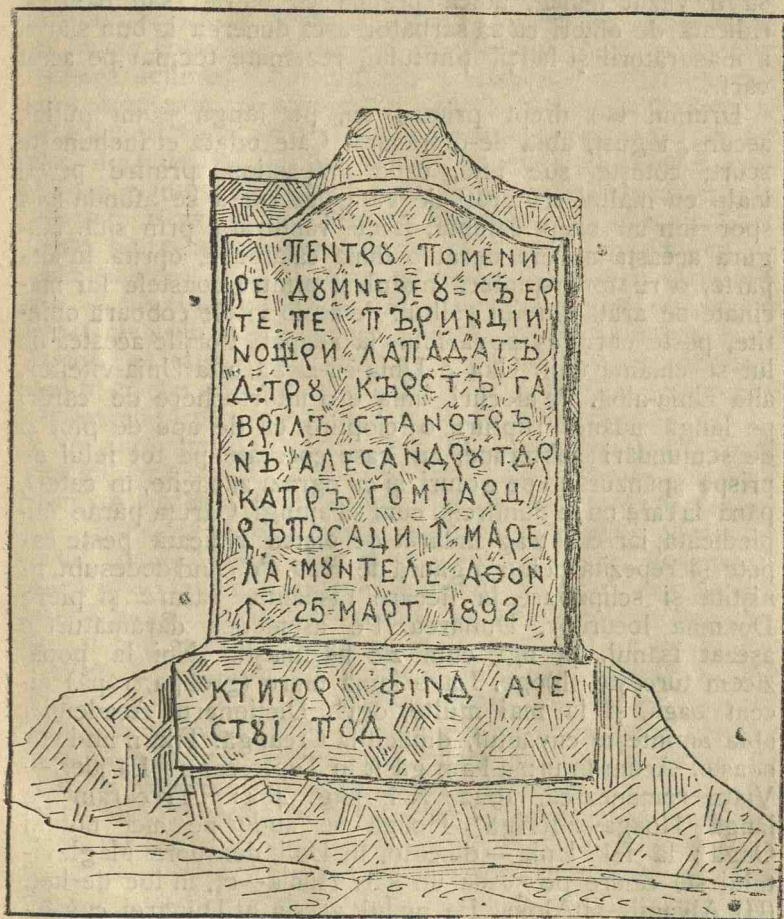 ПЕНТРꙊ ПОМЕНИ
РЕ ДꙊМНЕЗЕꙊ = СЪ ЕР
ТЕ ПЕ ПЪРИНЦІИ
НОЩРИ ЛАПАДАТЪ
Д:ТРꙊ КЪРСТЪ ГА
ВРІЛЪ СТАНОТРЪ
НЪ АЛЕСАНДРꙊ ТДР
КАПРЪ ГОМТАРЦ
РЪПОСАЦИ ꙟ МАРЕ
ЛА МꙊНТЕЛЕ АѲОН
ꙟ 25 МАРТ 1892
КТИТОР ФІНД АЧЕ
СТꙊІ ПОД